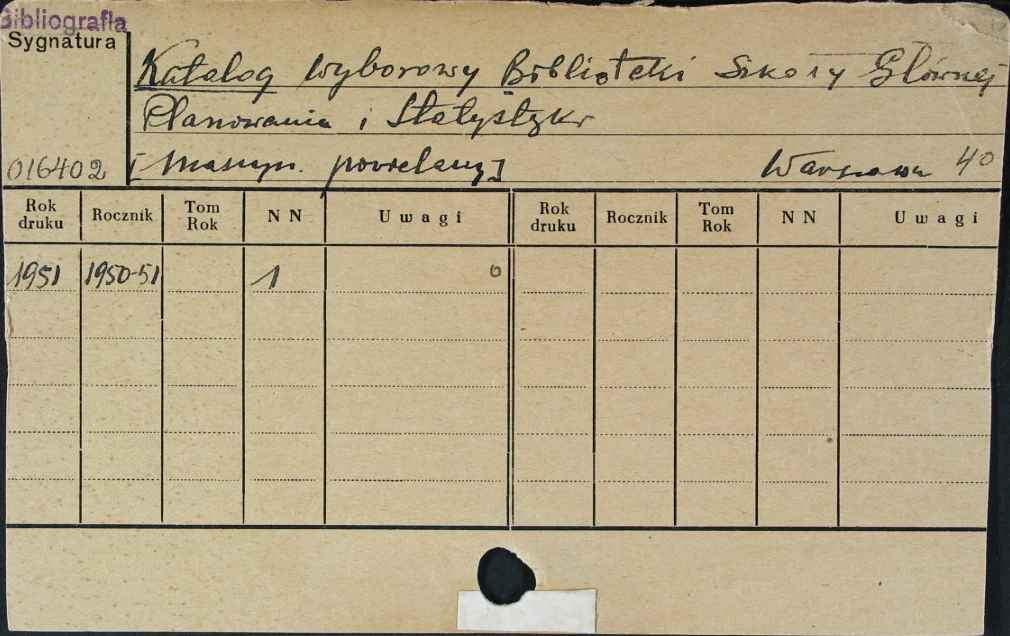 Bibliografia
Sygnatura
Katalog wyborowy Biblioteki Szkoły Głównej
Planowania i Statystyki
016402 [Maszyn. powielany] Warszawa 40
Rok druku Rocznik Tom Rok NN Uwagi Rok druku Rocznik Tom Rok NN Uwagi
1951 1950-51 1 0